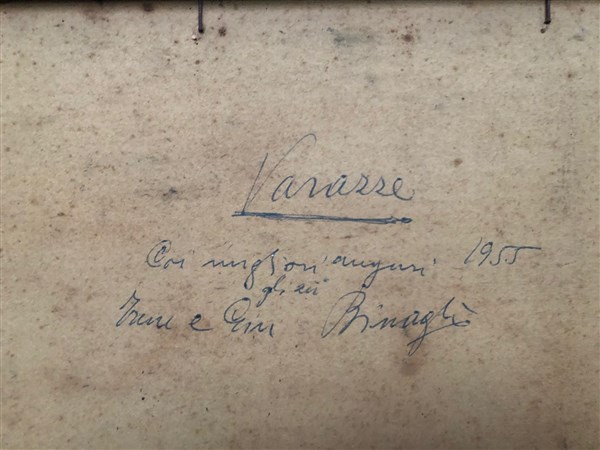 Varazze
Coi migliori auguri 1955
gli zii
e Binaghi